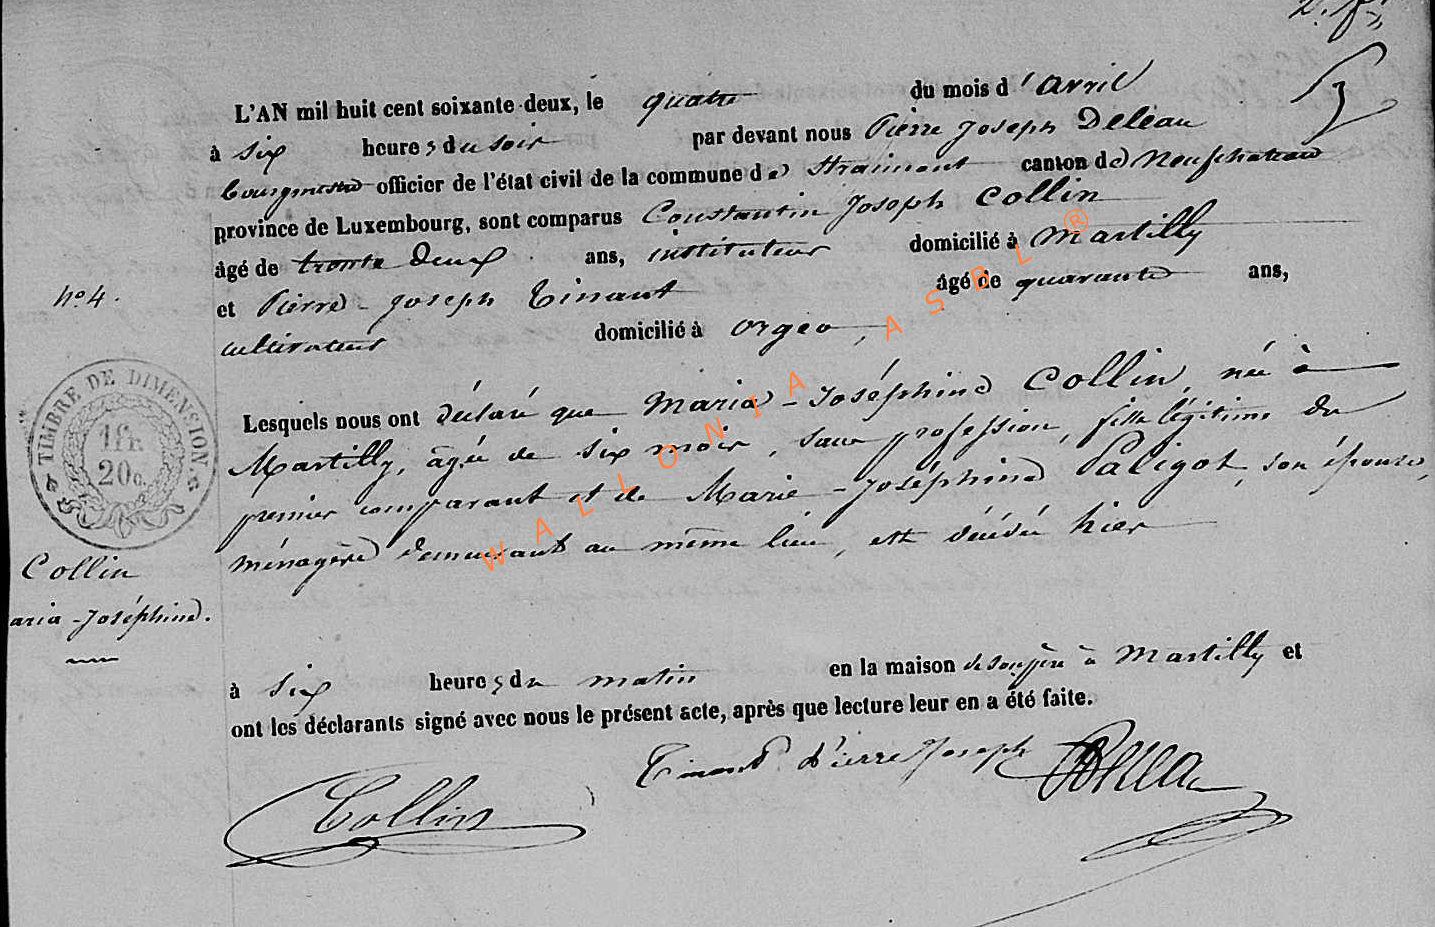 L'AN mil huit cent soixante-deux, le quatre du mois d'avril
à six heures du soir par devant nous Pierre Joseph Deleau
bourgmestre officier de l'état civil de la commune de Straimont canton de Neufchateau
province de Luxembourg, sont comparus Constantin Joseph Collin
âgé de trente deux ans, instituteur domicilié à Martilly
et Pierre-Joseph Tinant âgé de quarante ans,
cultivateur domicilié à Orgeo,
Lesquels nous ont déclaré que Maria-Joséphine Collin, née à
Martilly, âgée de six mois, sans profession, fille légitime du
premier comparant et de Marie-Joséphine Paligot, son épouse,
ménagère demeurant au même lieu, est décédée hier
à six heures du matin en la maison de son père à Martilly et
ont les déclarants signé avec nous le présent acte, après que lecture leur en a été faite.
Tinant Pierre Joseph
Collin
No 4.
TIMBRE DE DIMENSION.
1fr.
20c.
Collin
aria-Joséphine.
WALLONIA ASBL ®